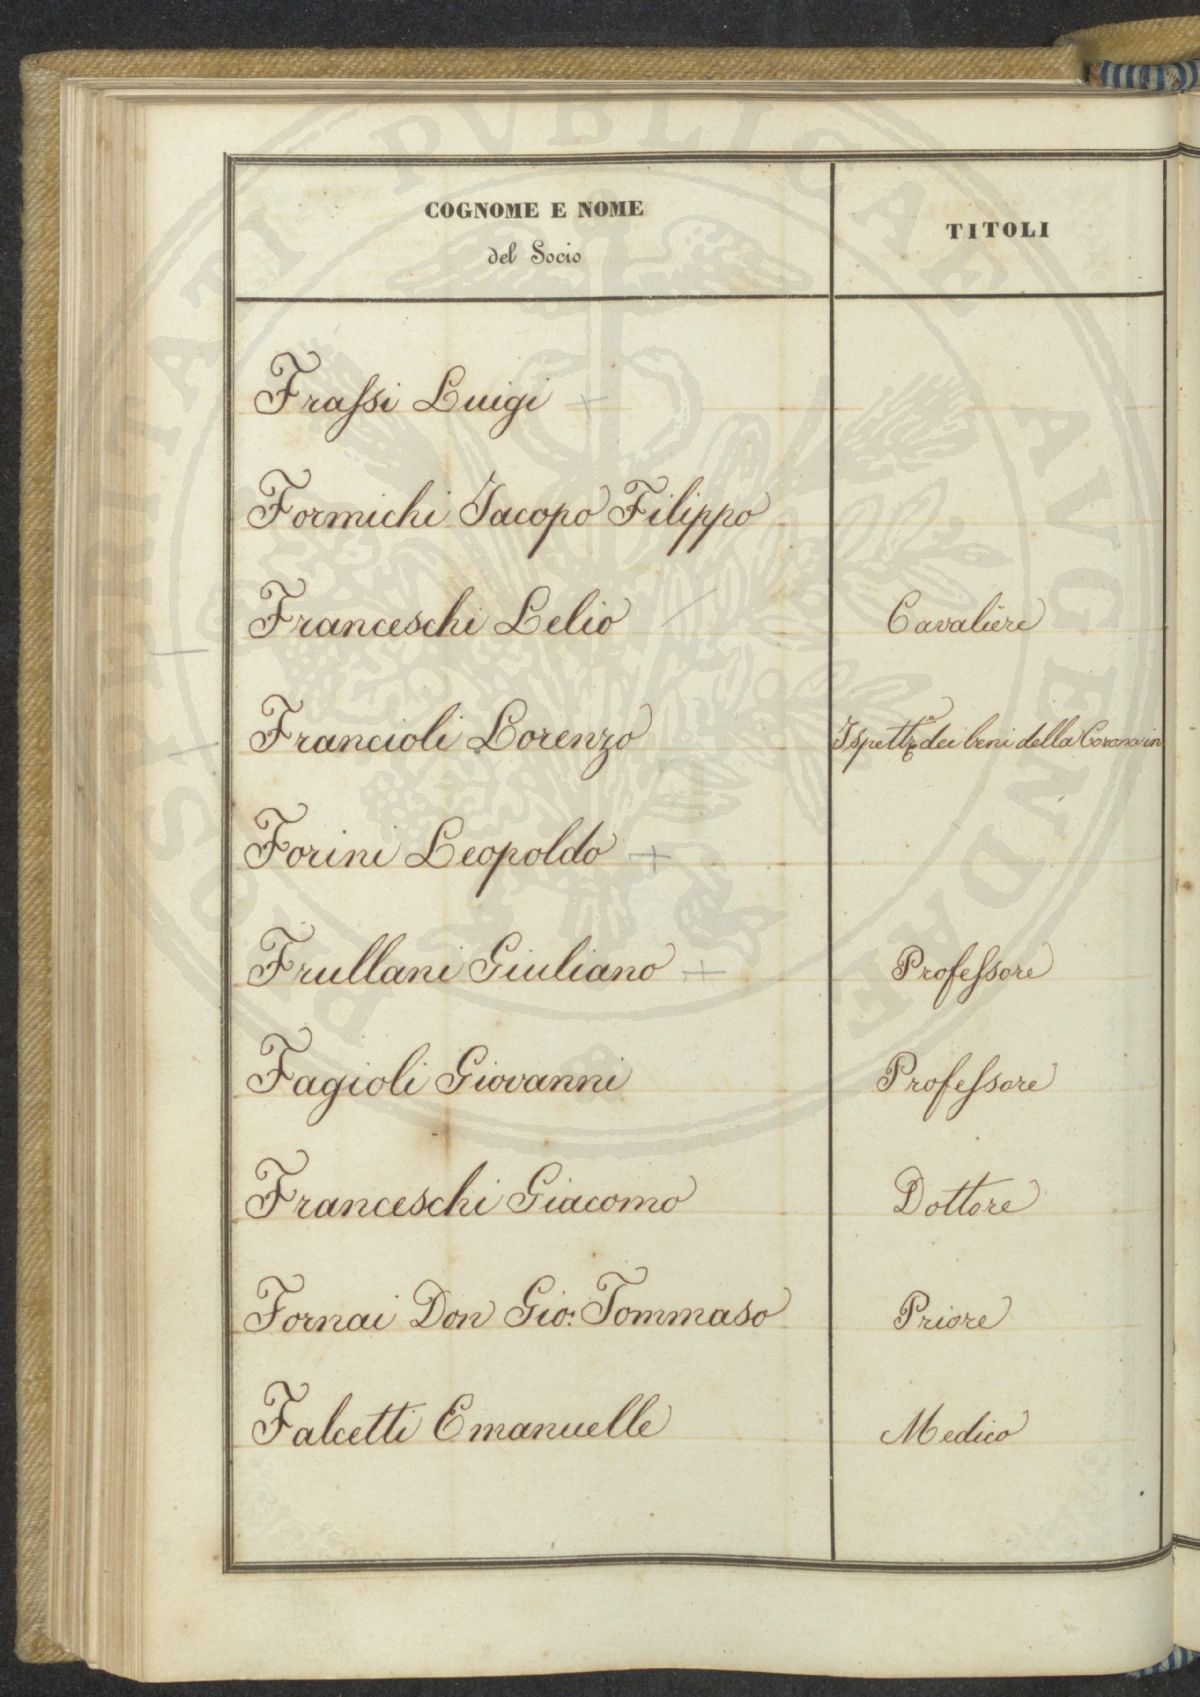 COGNOME E NOME
del Socio
TITOLI
Frassi Luigi +
Formichi Jacopo Filippo
Franceschi Lelio Cavaliere
Francioli Lorenzo Ispett.re dei beni della Corona in
Forini Leopoldo +
Frullani Giuliano + Professore
Fagioli Giovanni Professore
Franceschi Giacomo Dottore
Fornai Don Gio: Tommaso Priore
Falcetti Emanuelle Medico
PROSPERITATI PVBLICAE AVGENDAE